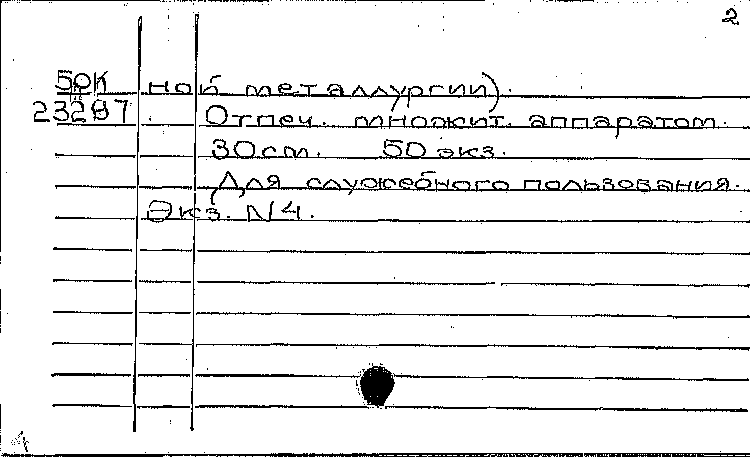 2
БОК ной металлургии).
23287 Отпеч. множит. аппаратом.
30 см. 50 экз.
Для служебного пользования.
Экз. N 4.
4